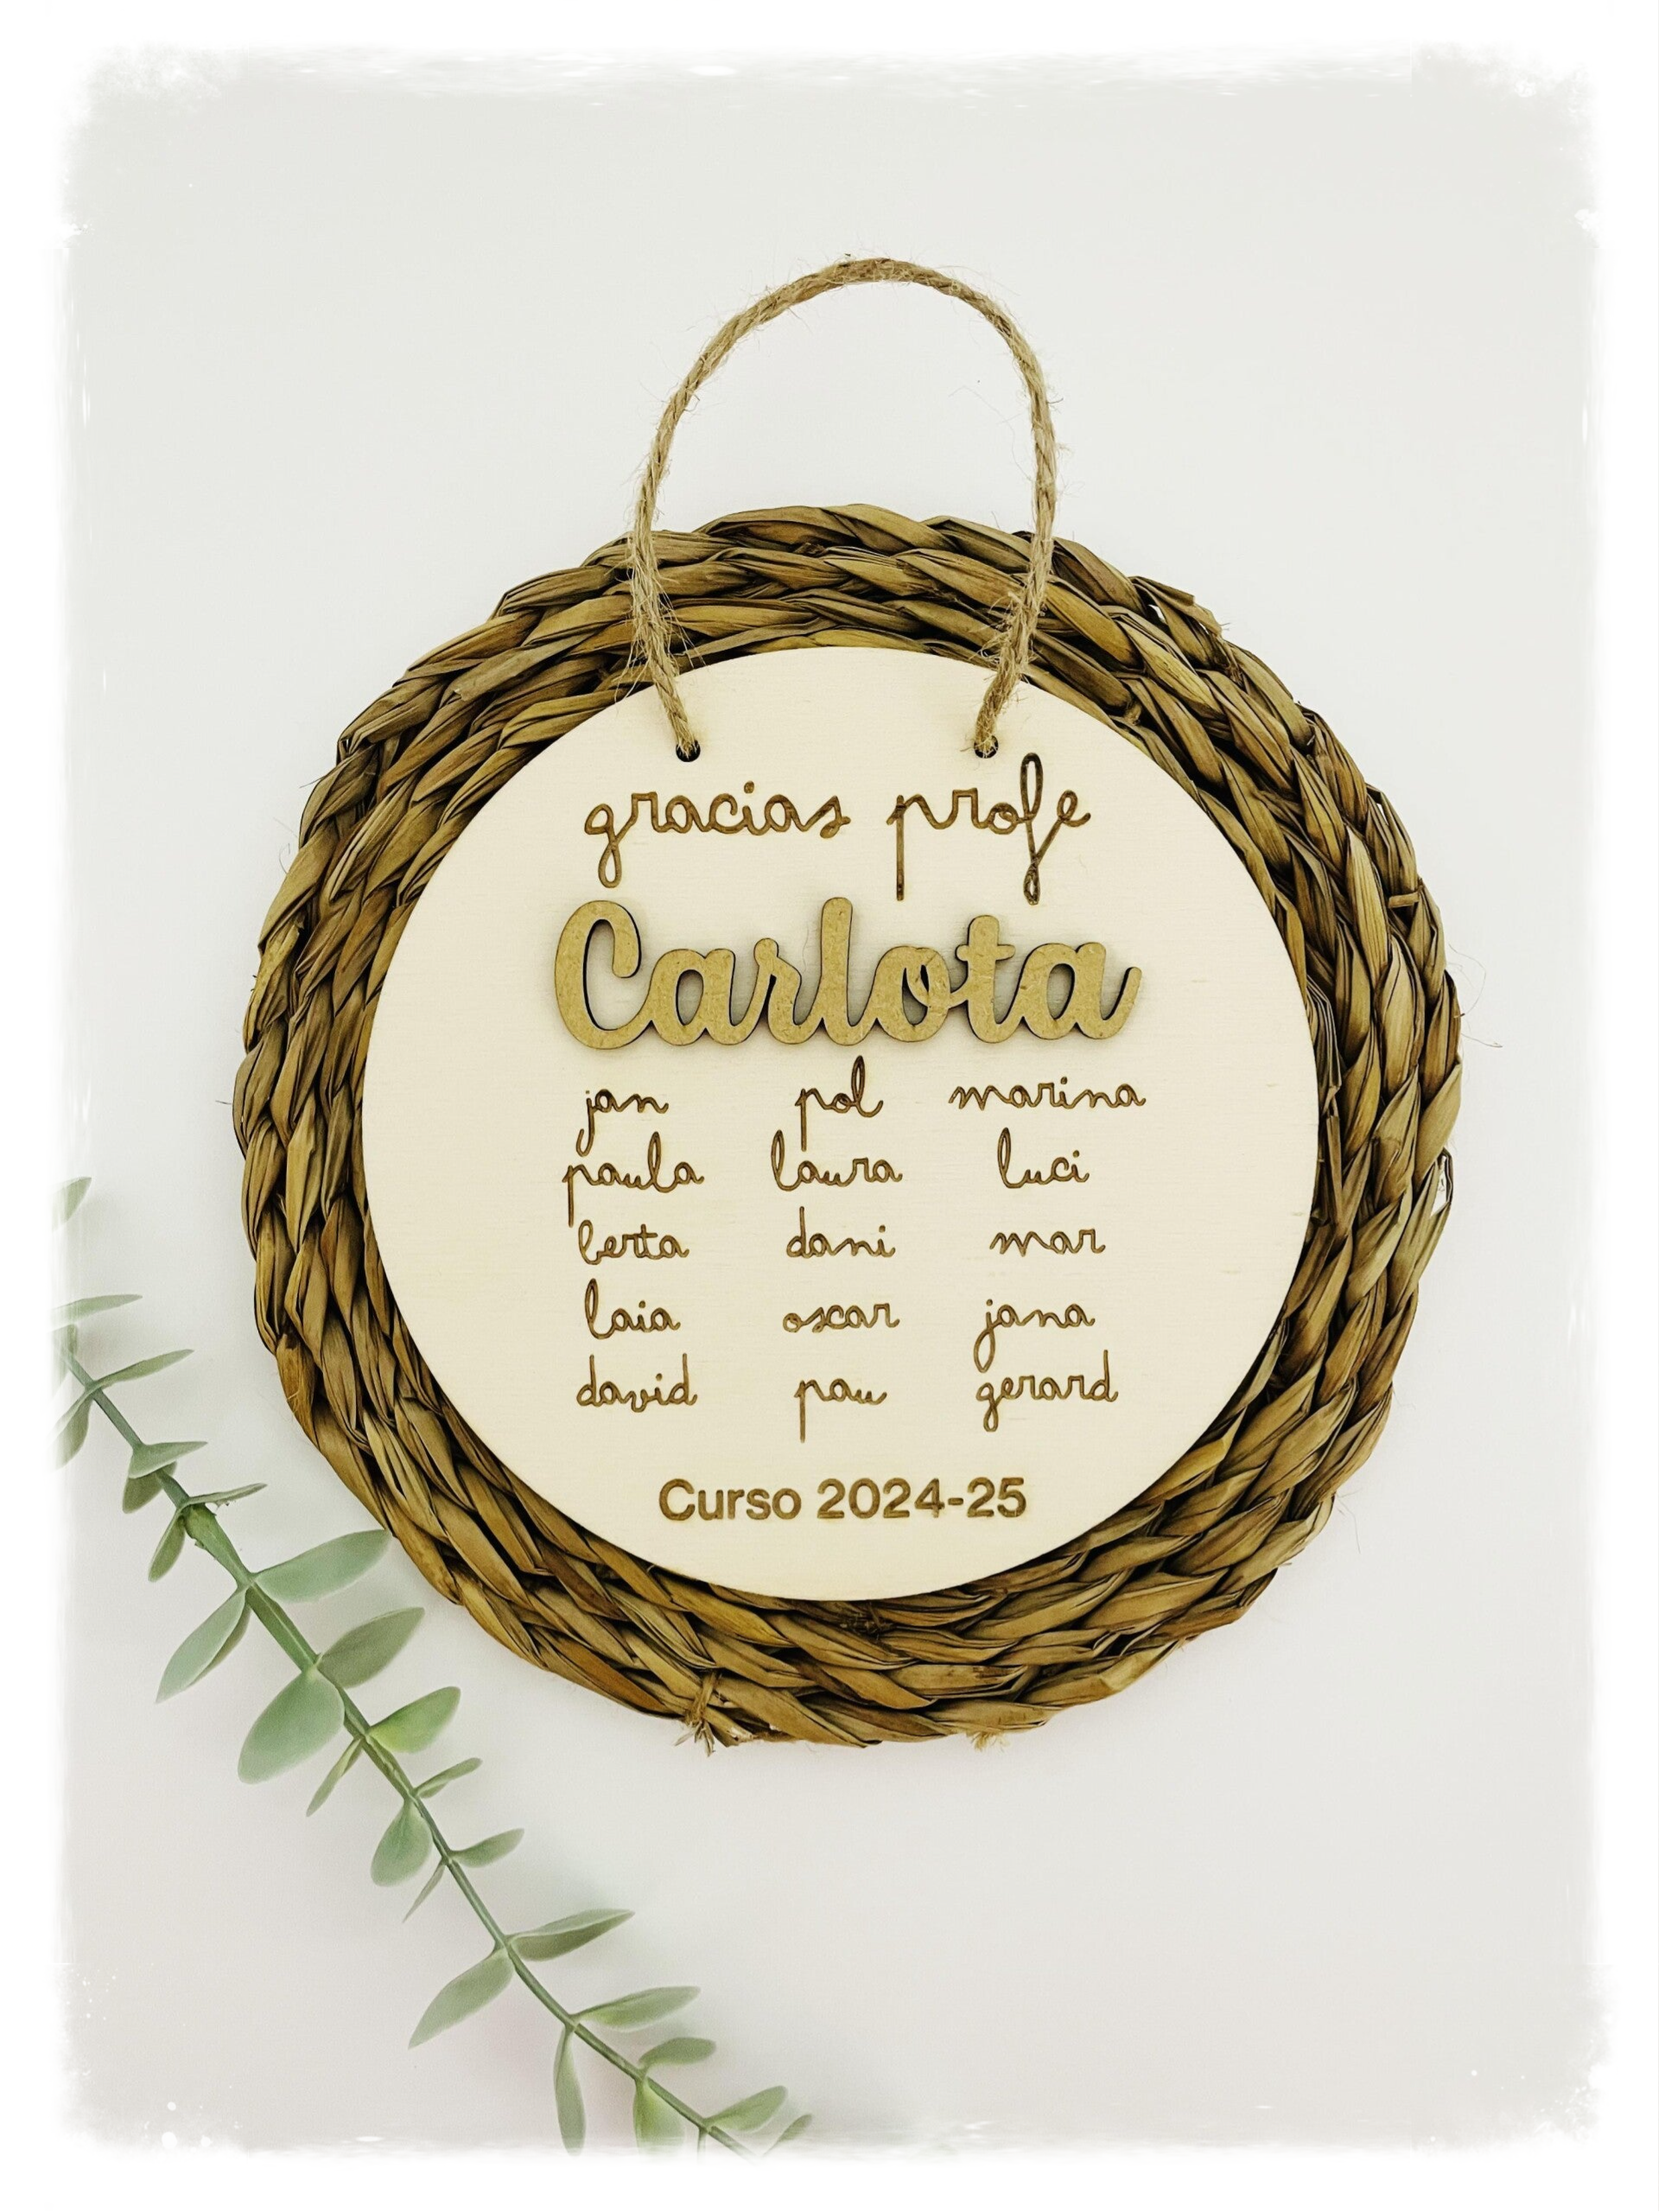 gracias profe
Carlota
jan pol marina
paula laura luci
berta dani mar
laia oscar jana
david pau gerard
Curso 2024-25